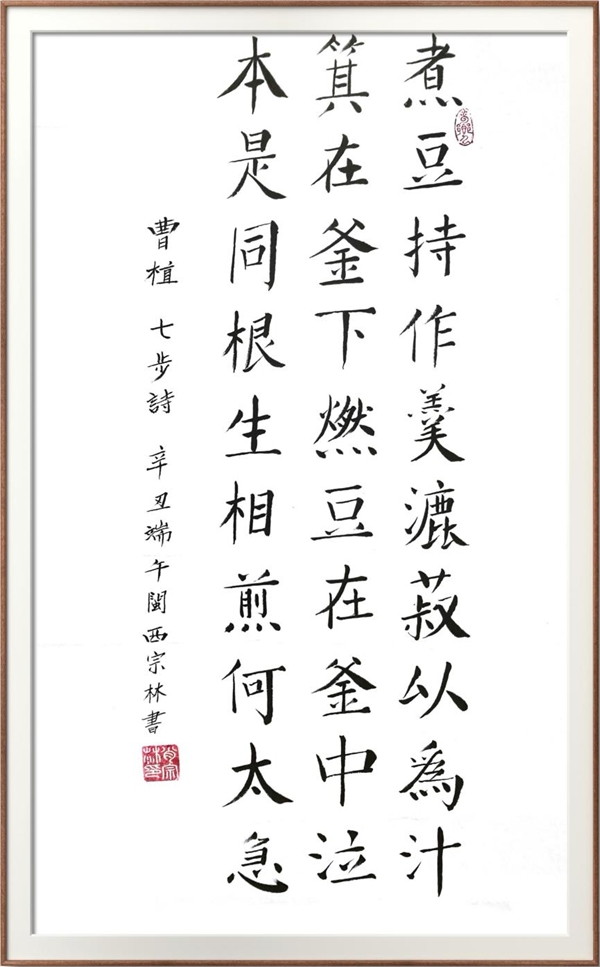 煮豆持作羹漉菽以為汁
箕在釜下燃豆在釜中泣
本是同根生相煎何太急
曹植 七步詩 辛丑端午閩西宗林書